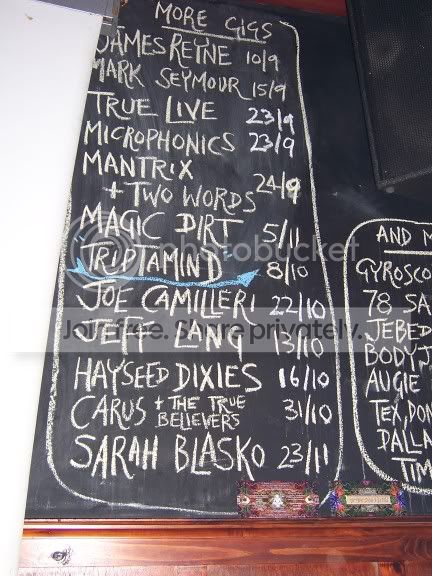 MORE GIGS
JAMES REYNE 10/9
MARK SEYMOUR 15/9
TRUE LIVE 23/9
MICROPHONICS 23/9
MANTRIX
+ TWO WORDS 24/9
MAGIC DIRT 5/11
TRIPTAMIND 8/10
JOE CAMILLERI 22/10
JEFF LANG 13/10
HAYSEED DIXIES 16/10
CARUS + THE TRUE
BELIEVERS 31/10
SARAH BLASKO 23/11
AND M
GYROSCO
78 SA
JEBED
BODYJ
AUGIE
TEX, DON
DALLA
TIM
photobucket
Join free. Share privately.